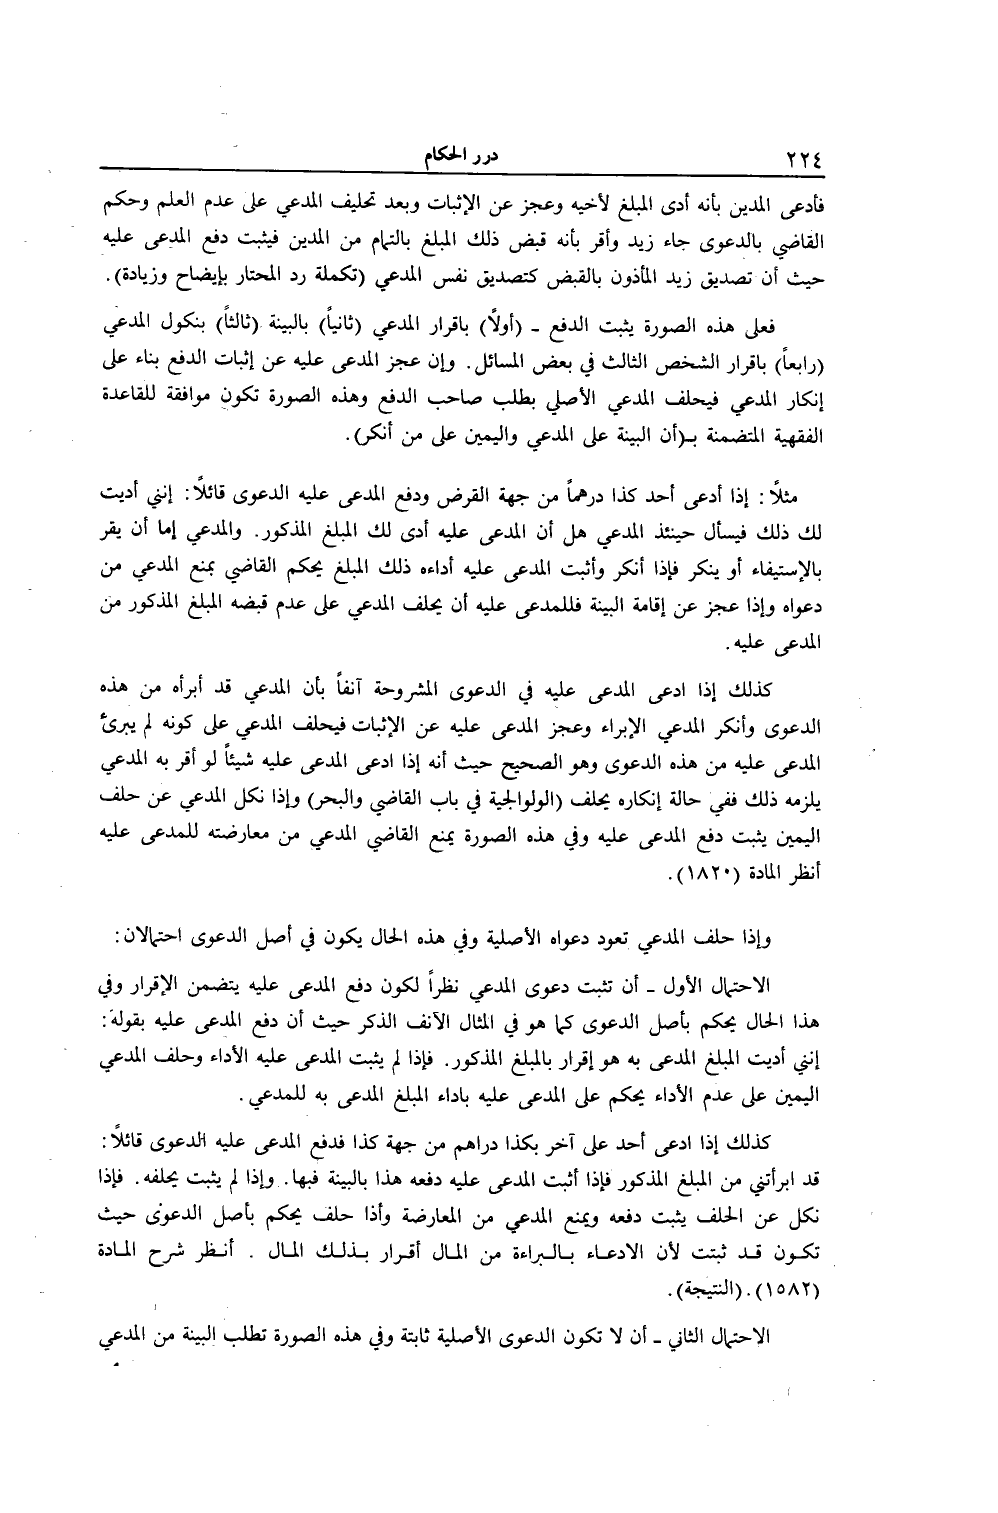 ٢٢٤
درر الحكام
فأدعى المدين بأنه أدى المبلغ لأخيه وعجز عن الإثبات وبعد تحليف المدعي على عدم العلم وحكم
القاضي بالدعوى جاء زيد وأقر بأنه قبض ذلك المبلغ بالتمام من المدين فيثبت دفع المدعى عليه
حيث أن تصديق زيد المأذون بالقبض كتصديق نفس المدعي (تكملة رد المحتار بإيضاح وزيادة).
فعلى هذه الصورة يثبت الدفع ـ (أولاً) باقرار المدعي (ثانياً) بالبينة (ثالثاً) بنكول المدعي
(رابعاً) باقرار الشخص الثالث في بعض المسائل. وإن عجز المدعى عليه عن إثبات الدفع بناء على
إنكار المدعي فيحلف المدعي الأصلي بطلب صاحب الدفع وهذه الصورة تكون موافقة للقاعدة
الفقهية المتضمنة بـ(أن البينة على المدعي واليمين على من أنكر).
مثلاً: إذا أدعى أحد كذا درهماً من جهة القرض ودفع المدعى عليه الدعوى قائلاً: إنني أديت
لك ذلك فيسأل حينئذ المدعي هل أن المدعى عليه أدى لك المبلغ المذكور. والمدعي إما أن يقر
بالإستيفاء أو ينكر فإذا أنكر وأثبت المدعى عليه أداءه ذلك المبلغ يحكم القاضي بمنع المدعي من
دعواه وإذا عجز عن إقامة البينة فللمدعى عليه أن يحلف المدعي على عدم قبضه المبلغ المذكور من
المدعى عليه.
كذلك إذا ادعى المدعى عليه في الدعوى المشروحة آنفاً بأن المدعي قد أبرأه من هذه
الدعوى وأنكر المدعي الإبراء وعجز المدعى عليه عن الإثبات فيحلف المدعي على كونه لم يبرئ
المدعى عليه من هذه الدعوى وهو الصحيح حيث أنه إذا ادعى المدعى عليه شيئاً لو أقر به المدعي
يلزمه ذلك ففي حالة إنكاره يحلف (الولوالجية في باب القاضي والبحر) وإذا نكل المدعي عن حلف
اليمين يثبت دفع المدعى عليه وفي هذه الصورة يمنع القاضي المدعي من معارضته للمدعى عليه
أنظر المادة (١٨٢٠).
وإذا حلف المدعي تعود دعواه الأصلية وفي هذه الحال يكون في أصل الدعوى احتمالان:
الاحتمال الأول ـ أن تثبت دعوى المدعي نظراً لكون دفع المدعى عليه يتضمن الإقرار وفي
هذا الحال يحكم بأصل الدعوى كما هو في المثال الآنف الذكر حيث أن دفع المدعى عليه بقوله:
إنني أديت المبلغ المدعى به هو إقرار بالمبلغ المذكور. فإذا لم يثبت المدعى عليه الأداء وحلف المدعي
اليمين على عدم الأداء يحكم على المدعى عليه باداء المبلغ المدعى به للمدعي.
كذلك إذا ادعى أحد على آخر بكذا دراهم من جهة كذا فدفع المدعى عليه الدعوى قائلاً:
قد ابرأتني من المبلغ المذكور فإذا أثبت المدعى عليه دفعه هذا بالبينة فبها. وإذا لم يثبت يحلفه. فإذا
نكل عن الحلف يثبت دفعه ويمنع المدعي من المعارضة وأذا حلف يحكم بأصل الدعوى حيث
تكون قد ثبتت لأن الادعاء بالبراءة من المال أقرار بذلك المال . أنظر شرح المادة
(١٥٨٢). (النتيجة).
الاحتمال الثاني ـ أن لا تكون الدعوى الأصلية ثابتة وفي هذه الصورة تطلب البينة من المدعي